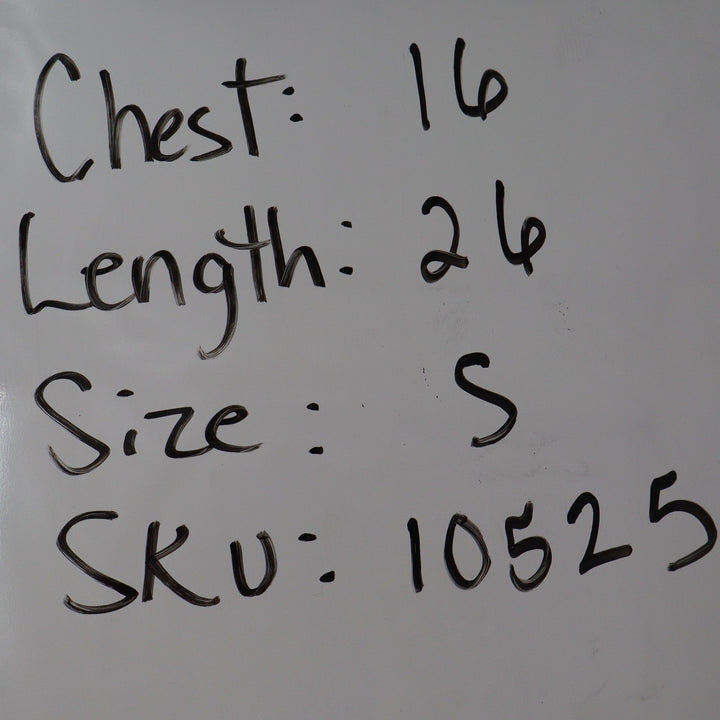 Chest: 16
Length: 26
Size: S
SKU: 10525